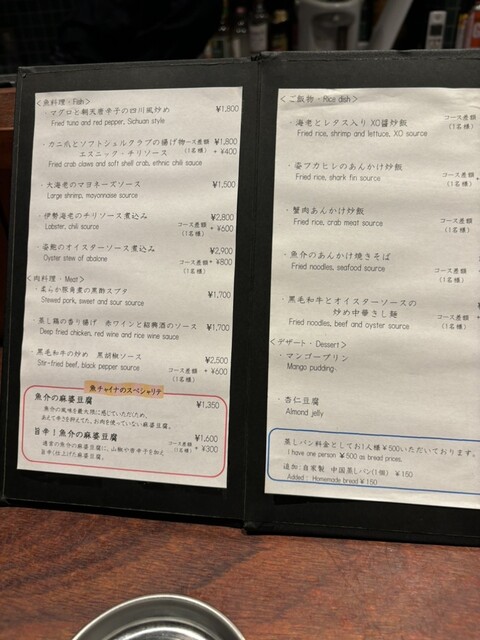 <魚料理・Fish>
・マグロと朝天唐辛子の四川風炒め ¥1,800
Fried tuna and red pepper, Sichuan style
・カニ爪とソフトシェルクラブの揚げ物 コース差額 ¥1,800
エスニック・チリソース (1名様) + ¥400
Fried crab claws and soft shell crab, ethnic chili sauce
・大海老のマヨネーズソース ¥1,500
Large shrimp, mayonnaise source
・伊勢海老のチリソース煮込み ¥2,800
Lobster, chili source コース差額 + ¥600
(1名様)
・姿鮑のオイスターソース煮込み ¥2,900
Oyster stew of abalone コース差額 + ¥800
(1名様)
<肉料理・Meat>
・柔らか豚角煮の黒酢スブタ ¥1,700
Stewed pork, sweet and sour source
蒸し鶏の香り揚げ 赤ワインと紹興酒のソース ¥1,700
Deep fried chicken, red wine and rice wine sauce
・黒毛和牛の炒め 黒胡椒ソース ¥2,500
Stir-fried beef, black pepper source コース差額 + ¥600
(1名様)
魚チャイナのスペシャリテ
魚介の麻婆豆腐 ¥1,350
魚介の風味を最大限に感じていただくため、
あえて辛さを抑えてた、お肉を使っていない麻婆豆腐。
旨辛!魚介の麻婆豆腐 ¥1,600
通常の魚介の麻婆豆腐に、山椒や青辛子を加え コース差額 + ¥300
旨辛く仕上げた麻婆豆腐。 (1名様)
<ご飯物・Rice dish>
・海老とレタス入りXO醤炒飯 コース差額
Fried rice, shrimp and lettuce, XO source (1名様)
・姿フカヒレのあんかけ炒飯
Fried rice, shark fin source コース差額
(1名様)
・蟹肉あんかけ炒飯
Fried rice, crab meat source コース差額
(1名様)
・魚介のあんかけ焼きそば
Fried noodles, seafood source コース差額
(1名様)
・黒毛和牛とオイスターソースの
炒め中華きし麺
Fried noodles, beef and oyster source コース差額
(1名様)
<デザート・Dessert>
・マンゴープリン
Mango pudding
・杏仁豆腐
Almond jelly
蒸しパン料金としてお1人様¥500いただいております。
I have one person ¥500 as bread prices.
追加:自家製 中国蒸しパン(1個) ¥150
Added : Homemade bread ¥150